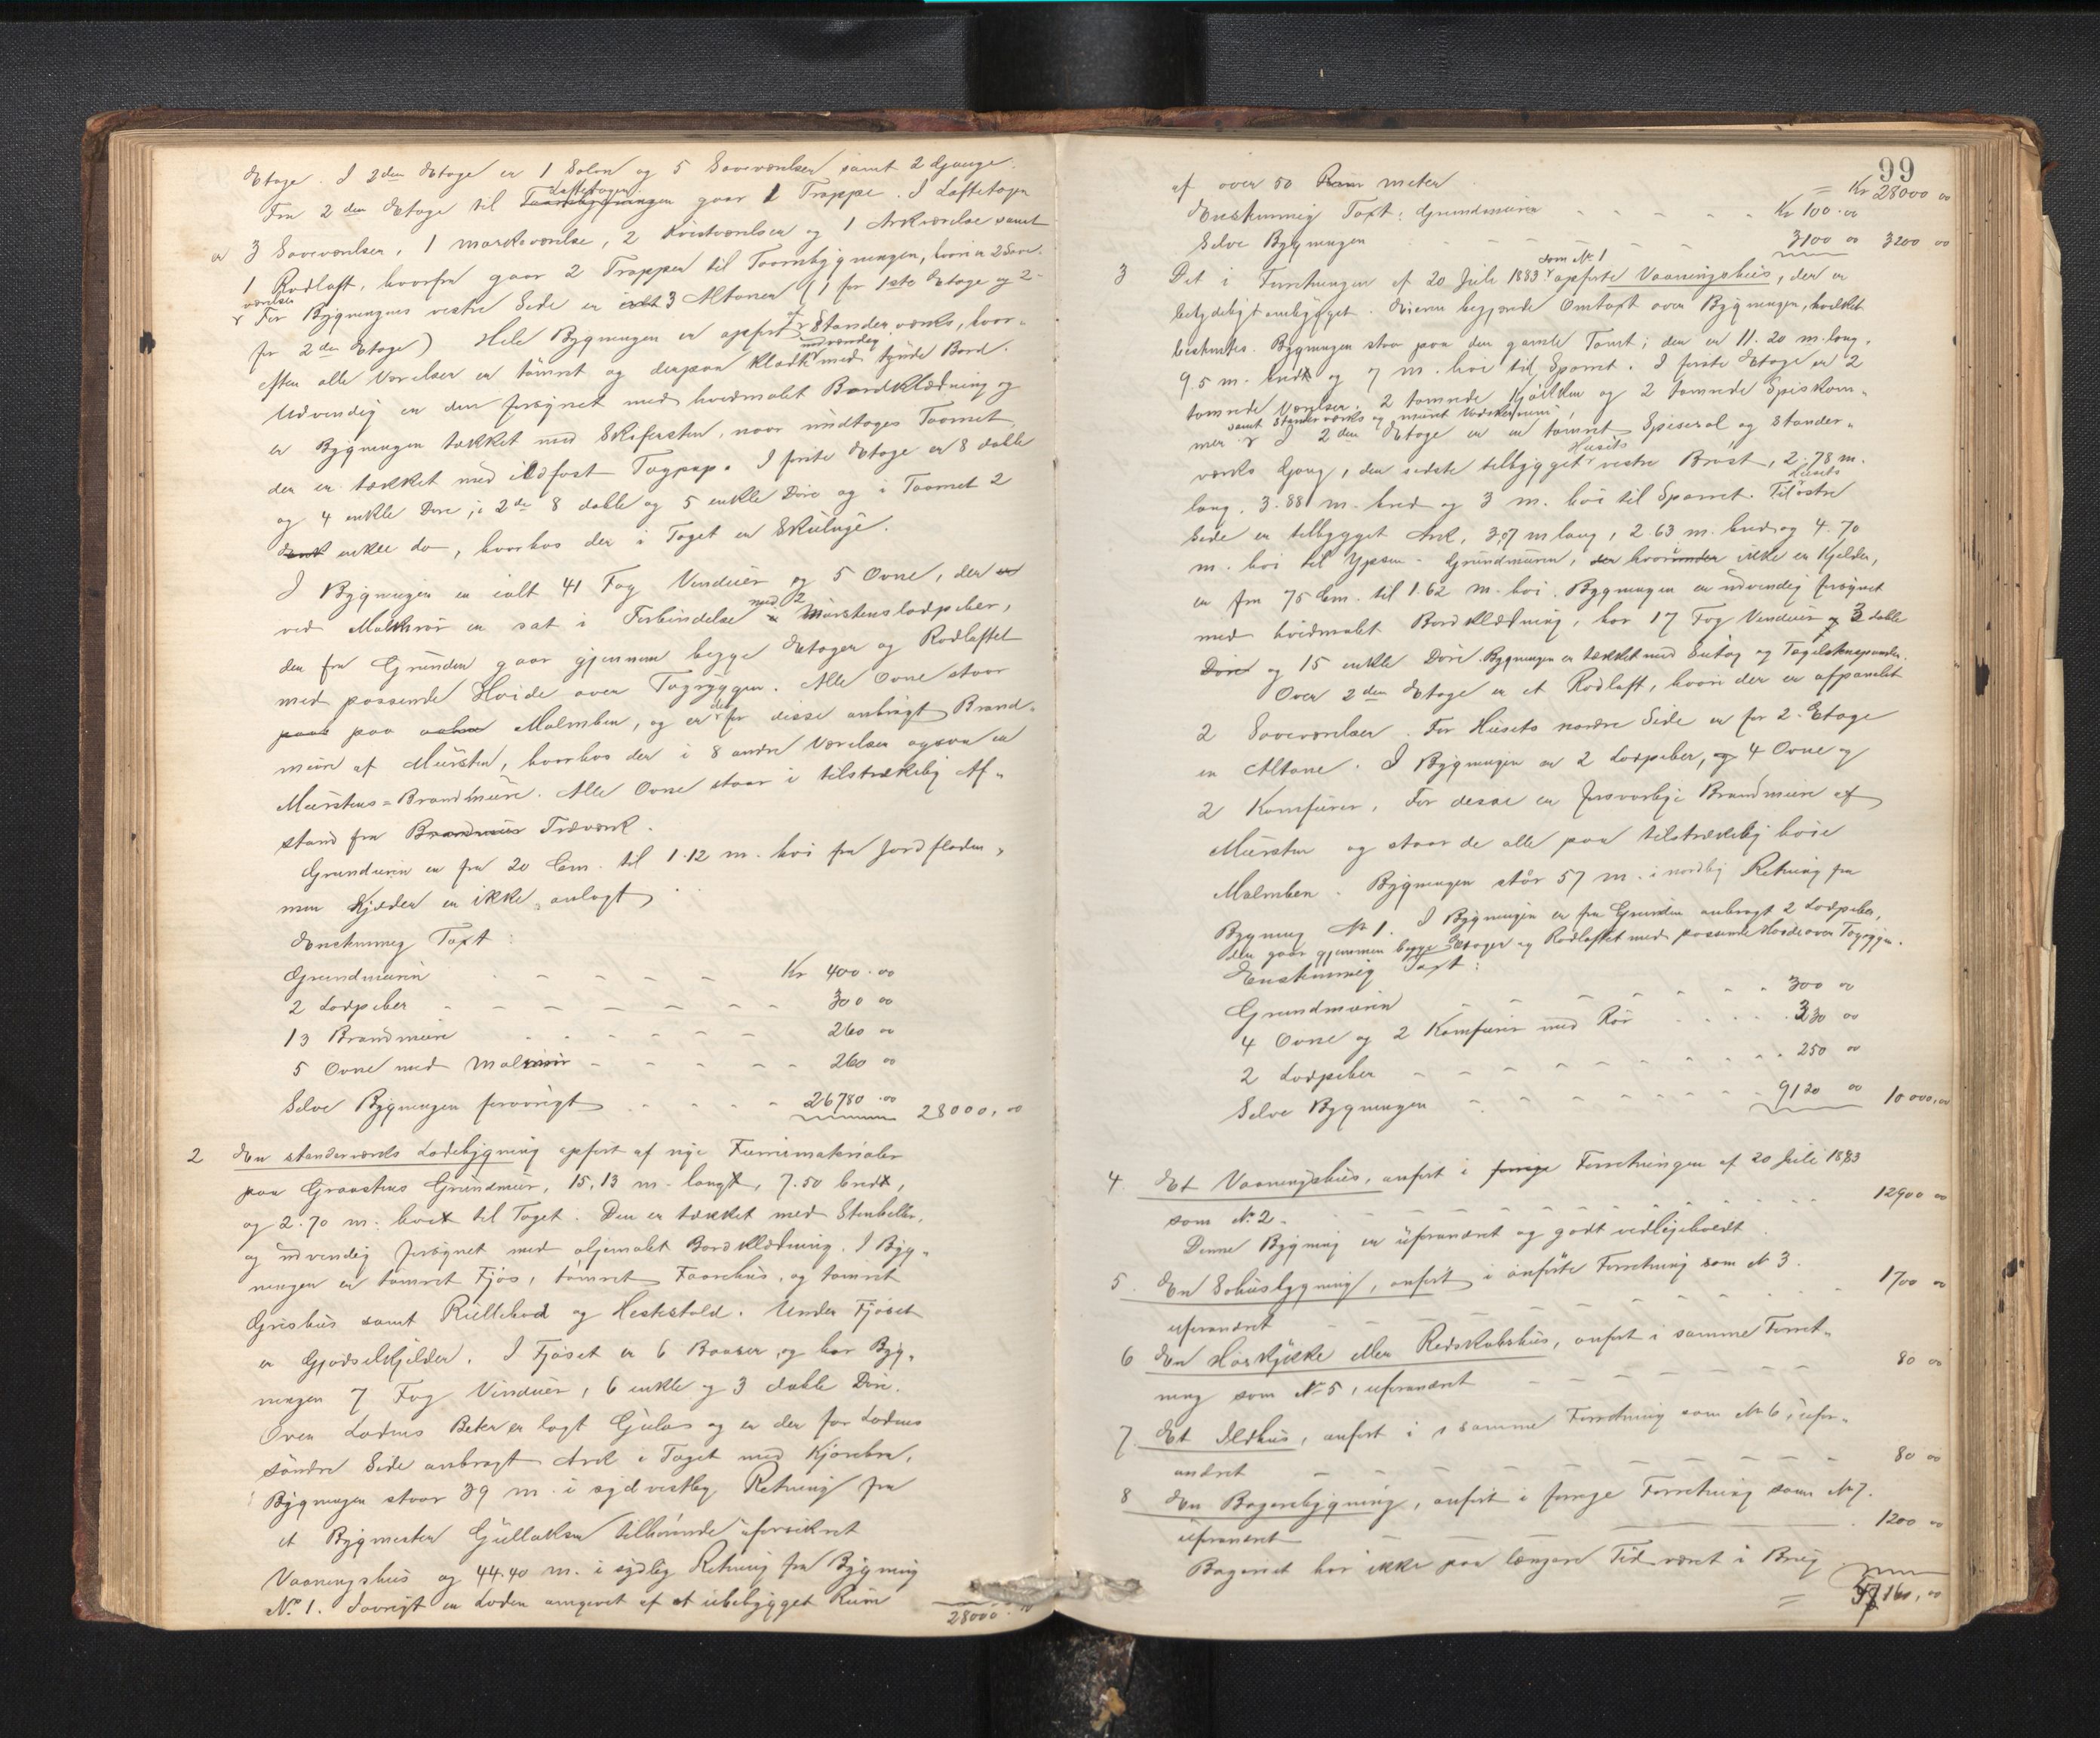 Etage. I 2den Etage er 1 Salon og 5 Soveværelser samt 2 Gange.
Fra 2den Etage til Loftetagen gaar 1 Trappe. I Loftetagen
er 3 Soveværelser, 1 Mørkeværelse, 2 Kvistværelser og 1 Arkværelse samt
1 Rødloft, hvorfra gaar 2 Trapper til Taarnbygningen, hvori er 2 Sove-
værelser
For Bygningens vestre Side er ialt 3 Altaner (1 for 1ste Etage og 2
for 2den Etage) Hele Bygningen er opført af Standerværk, hvor-
efter alle Værelser er tømret og derpaa klædt indvendig med tynde Bord.
Udvendig er den forsynet med hvidmalet Bordklædning og
er Bygningen tækket med Skifersten, naar undtages Taarnet,
der er tækket med ildfast Tagpap. I første Etage er 8 doble
og 4 enkle Døre, i 2de 8 doble og 5 enkle Døre og i Taarnet 2
enkle do, hvorhos der i Taget er Skiluge.
I Bygningen er ialt 41 Fag Vinduer og 5 Ovne, der
ved Malmrør er sat i Forbindelse med 2 Murstenslodpiber,
der fra Grunden gaar gjennem begge Etager og Rødloftet
med passende Høide over Tagryggen. Alle Ovne staar
paa Malmben, og er der for disse anbragt Brand-
mure af Mursten, hvorhos der i 8 andre Værelser ogsaa er
Murstens-Brandmure. Alle Ovne staar i tilstrækkelig Af-
stand fra Træværk.
Grundmuren er fra 20 Cm. til 1.12 m. høi fra Jordfladen,
men Kjælder er ikke anlagt
Enstemmig Taxt:
Grundmuren Kr 400.00
2 Lodpiber 300 00
13 Brandmure 260 00
5 Ovne med Malmrør 260 00
Selve Bygningen forøvrigt 26780.00 28000,00
2 En standerværks Ladebygning opført af nye Furrumaterialer
paa Graastens Grundmur, 15,13 m. lang, 7.50 bred,
og 2.70 m. høi til Taget. Den er tækket med Stenheller,
og udvendig forsynet med oljemalet Bordklædning. I Byg-
ningen er tømret Fjøs, tømret Faarehus, og tømret
Grishus samt Rullebod og Heststald. Under Fjøset
er Gjødselkjelder. I Fjøset er 6 Baaser, og har Byg-
ningen 7 Fag Vinduer, 6 enkle og 3 doble Døre.
Over Ladens Beter er lagt Gulv og er der for Ladens
søndre Side anbragt Ark i Taget med Kjørebro.
Bygningen staar 39 m. i sydvestlig Retning fra
et Bygmester Gullaksen tilhørende uforsikret
Vaaningshus og 44.40 m. i sydlig Retning fra Bygning
No 1. Forøvrigt er Laden omgivet af et ubebygget Rum
28000.00
99
af over 50 meter
= Kr 28000 00
Enstemmig Taxt: Grundmuren Kr 100.00
Selve Bygningen 3100 00 3200 00
3 Det i Forretningen af 20 Juli 1883 som No 1 opførte Vaaningshus, der er
betydeligt ombygget. Eieren begjærede Omtaxt over Bygningen, hvilket
besluttes. Bygningen staar paa den gamle Tomt; den er 11.20 m. lang,
9.5 m. bred og 7 m. høi til Sparret. I første Etage er 2
tømrede Værelser, 2 tømrede Kjøkken og 2 tømrede Spiskam-
mer samt Standerværks og muret Vaskerum, I 2den Etage er en tømret Spisesal og Stander-
værks Gang, den sidste tilbygget Husets vestre Brøst, 2.78 m.
lang, 3.88 m. bred og 3 m. høi til Sparret. Til Husets østre
Side er tilbygget Ark, 3,7 m lang, 2.63 m. bred og 4.70
m. høi til Ypsen. Grundmuren, hvorunder ikke er Kjelder,
er fra 75 Cm. til 1.62 m. høi. Bygningen er udvendig forsynet
med hvidmalet Bordklædning, har 17 Fag Vinduer 3 doble
og 15 enkle Døre. Bygningen er tækket med Sutag og Taglstenspander.
Over 2den Etage er et Rødloft, hvori der er afpanelet
2 Soveværelser. For Husets nordre Side er for 2. Etage
en Altane. I Bygningen er 2 Lodpiber, 4 Ovne og
2 Komfurer. For desse er forsvarlige Brandmure af
Mursten og staar de alle paa tilstrækkelig høie
Malmben. Bygningen står 57 m. i nordlig Retning fra
Bygning No 1. I Bygningen er fra Grunden anbragt 2 Lodpiber,
der gaar gjennem begge Etager og Rødloftet med passende Høide over Tagryggen.
Enstemmig Taxt:
Grundmuren 300 00
4 Ovne og 2 Komfurer med Rør 330 00
2 Lodpiber 250 00
Selve Bygningen 9120 00 10000,00
4. Et Vaaningshus, anført i Forretningen af 20 Juli 1883
som No 2. 12900 00
Denne Bygning er uforandret og godt vedligeholdt.
5. En Søhusbygning, anført i anførte Forretning som No 3.
uforandret 1700 00
6 En Hørkjikke eller Redskabshus, anført i samme Forret-
ning som No 5, uforandret 80 00
7. Et Ildhus, anført i samme Forretning som No 6, ufor-
andret 80 00
8 En Bageribygning, anført i forrige Forretning som No 7.
uforandret 1200 00
Bageriet har ikke paa længere Tid været i Brug
= 57160,00